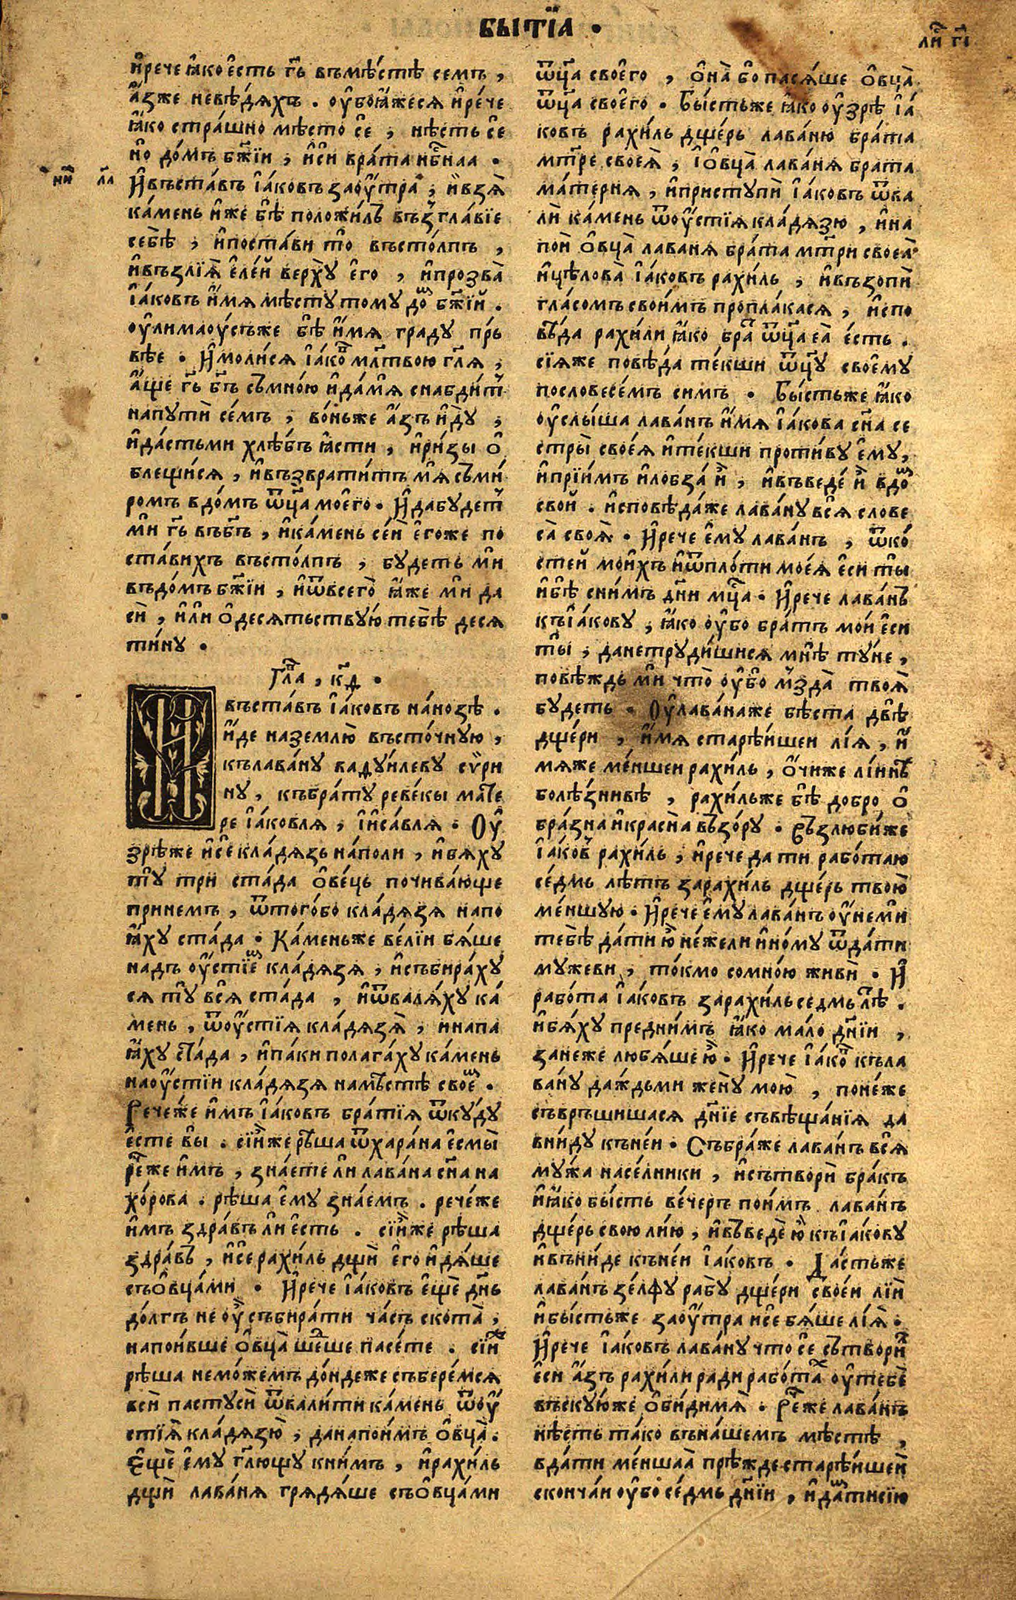 БЫТЇА ·
ли҃ г҃і
и҆рече ꙗ҆ко е҆сть гдⷭ҇ь въмѣ́стѣ семъ ,
а҆́зже невѣ́дяхъ . оу҆боꙗ҆́жеся и҆рече
ꙗ҆́ко стра́шно мѣ́сто се҆ , нѣ́сть се҆
но҆ до́мъ бж҃їи , и҆си врата̀ нб҇наа ·
И҆въста́въ і҆а́ковъ заоу҆́тра , и҆взя̀
ка́мень и҆́же бѣ̀ положи́лъ възгла́вїе
себѣ̀ , и҆поста́ви то҆ въсто́лпъ ,
и҆възлїя̀ е҆ле́й верхꙋ̀ е҆го , и҆прозва̀
і҆а́ковъ и҆́мя мѣ́стꙋ томꙋ до́ⷨ бж҃їй .
оу҆лимаоу́съже бѣ̀ и҆́мя градꙋ пръ
вѣе · И҆моли́ся і҆а́коⷡ мл҃твою гл҃я ,
а҆́ще гдⷭ҇ь бг҃ъ съмно́ю и҆да́мя снабди́тⸯ
напꙋтѝ се́мъ , во́ньже а҆́зъ и҆дꙋ̀ ,
и҆да́стьми хлѣ́бъ ꙗ҆́сти , и҆ри́зы о҆
блещи́ся , и҆възврати́тъ мя съми
ромъ вдо́мъ ѿц҃а моего · И҆дабꙋ́детⸯ
ми гдⷭ҇ь въбг҃ъ , и҆ка́мень се́й е҆го́же по
ста́вихъ въсто́лпъ , бꙋ́деть ми
въдо́мъ бж҃їи , и҆ѿвсего̀ ꙗ҆́же ми да
си́ , и҆́ли о҆десятьствꙋ́ю тебѣ̀ деся
ти́нꙋ ·
Гла҃ , к҃д ·
И҆въста́въ і҆а́ковъ на́нозѣ ·
и҆́де наземлю̀ въсто́чнꙋю ,
къ лава́нꙋ вадꙋи́левꙋ сѵ́ри
нꙋ , къбра́тꙋ реве́кы мате
ре і҆а́ковля , і҆и҆са́вля · Оу҆
зрѣ́же и҆се кла́дязь на́поли , и҆бя́хꙋ
тꙋ̀ три ста́да о҆ве́ць почива́юще
принемъ , ѿтого́бо кла́дязя напо
ꙗ҆́хꙋ ста́да · Ка́меньже ве́лїи бя́ше
надъ оу҆́стїеⷨ кла́дязя , и҆събира́хꙋ
ся тꙋ̀ вся ста́да , и҆ѿваля́хꙋ ка́
мень , ѿоу҆́стїя кла́дязя , и҆напа
ꙗ҆́хꙋ ста́да , и҆па́ки полага́хꙋ ка́мень
наоу҆́стїи кла́дязя намѣ́стѣ свое́ⷨ ·
Рече́же и҆мъ і҆а́ковъ бра́тїя ѿкꙋ́дꙋ
е҆сте вы̀ . сїи́же рѣ́ша ѿхара́на е҆смы̀
ре́же и҆мъ , зна́ете ли лава́на сн҃а на
хо́рова . рѣ́ша е҆мꙋ зна́емъ . рече́же
и҆мъ здра́въ ли е҆сть . сїи́же рѣ́ша
здра́въ , и҆се рахи́ль дщѝ е҆го и҆дя́ше
съо҆вца́ми · И҆рече і҆а́ковъ е҆щѐ дн҃ь
до́лгъ не оу҆̀ събира́ти ча́съ скота̀ ,
напои́вше о҆вца̀ ше́ⷣше пасе́те . сїи́ⷤ
рѣ́ша немо́жемъ до́ндеже събере́мся
всѝ пастꙋсѝ ѿвали́ти ка́мень ѿоу҆
стїя кла́дязю , данапои́мъ о҆вца̀ .
Е҆щѐ е҆мꙋ гл҃ющꙋ книмъ , и҆рахи́ль
дщѝ лава́ня грядя́ше съо҆вца́ми
ѿц҃а своего , о҆на̀ бо пася́ше о҆вца̀
ѿц҃а своего · Бы́стьже ꙗ҆ко оу҆зрѣ̀ і҆а́
ковъ рахи́ль дще́рь лава́ню бра́та
мт҃ре своея̀ , і҆о҆вца̀ лава́ня бра́та
ма́терня , и҆пристꙋпѝ і҆а́ковъ ѿва
лѝ ка́мень ѿоу҆́стїя кла́дязю , и҆на
поѝ о҆вца̀ лава́ня бра́та мт҃ри своеа̀
и҆цѣлова̀ і҆а́ковъ рахи́ль , и҆възопѝ
гла́сомъ свои́мъ пропла́кася , и҆спо
вѣ́да рахи́ли ꙗ҆́ко бра́ⷮ ѿц҃а еа҆̀ е́сть .
сїя́же повѣ́да те́кши ѿц҃ꙋ своемꙋ
пословесе́мъ симъ · Бы́стьже ꙗ҆́ко
оу҆слы́ша лава́нъ и҆́мя і҆а́кова сн҃а се
стры̀ своея̀ и҆те́кши проти́вꙋ е҆мꙋ ,
и҆прїи́мъ и҆лобза̀ и҆̀ , и҆въведе́ и҆̀ вдо́ⷨ
сво́й . и҆сповѣ́даже лава́нꙋ вся слове
са̀ своя̀ · И҆рече е҆мꙋ лава́нъ , ѿко
сте́й мои́хъ и҆ѿпло́ти моея̀ е҆си ты̀
и҆бѣ̀ снимъ дн҃и мцⷭ҇а · И҆рече лава́нъ
къ і҆а́ковꙋ , ꙗ҆ко оу҆бо бра́тъ мои е҆си
ты̀ , данетрꙋди́шися мнѣ̀ тꙋ́не ,
повѣ́ждь ми что̀ оу҆бо мзда̀ твоя̀
бꙋ́деть · Оу҆лава́наже бѣ́ста двѣ̀
дще́ри , и҆́мя старѣ́ишеи лі́я , и҆́
мяже ме́ншеи рахи́ль , о҆́чиже лі́инѣ
болѣ́знивѣ , рахи́льже бѣ̀ добро̀ о҆́
бразна и҆красна̀ взо́рꙋ · Възлюби́же
і҆а́ковъ рахи́ль , и҆рече да ти рабо́таю
се́дмь лѣ́тъ зарахи́ль дще́рь твою̀
ме́ншꙋю · И҆рече е҆мꙋ лава́нъ оу҆не́ми
тебѣ̀ да́ти ю҆̀ не́жели и҆но́мꙋ ѿда́ти
мꙋ́жеви , то́кмо сомно́ю живѝ · И҆
рабо́та і҆а́ковъ зарахи́ль се́дмь лѣ́ⷮ .
и҆бя́хꙋ предни́мъ ꙗ҆́ко ма́ло дн҃їи ,
зане́же любя́ше ю҆̀ · И҆рече і҆а́коⷡ къла
ва́нꙋ да́ждьми женꙋ̀ мою̀ , поне́же
съвръши́шася дн҃їе съвѣща́нїя да
вни́дꙋ кънеи · Събра́же лава́нъ вся
мꙋ́жа насе́лники , и҆сътворѝ бра́къ
и҆ꙗ҆ко бы́сть ве́черъ пои́мъ лава́нъ
дще́рь свою лі́ю , и҆въведѐ ю҆̀ къ і҆а́ковꙋ
и҆вни́де къне́и і҆а́ковъ · Да́стьже
лава́нъ зе́лфꙋ рабꙋ̀ дще́ри своеи лі́и
и҆бы́стьже заоу҆́тра и҆се бя́ше лі́я ·
И҆рече і҆а́ковъ лава́нꙋ что се҆ сътвори́ⷧ
е҆си а҆́зъ рахи́ли ради рабо́таⷯ оу҆тебѐ
въскꙋ́юже о҆би́димя · Ре́же лава́нъ
нѣ́сть та́ко вна́шемъ мѣ́стѣ ,
вда́ти ме́ншаа пре́жде старѣ́ишей
сконча́и оу҆бо се́дмь дн҃їи , и҆да́ⷨтисїю